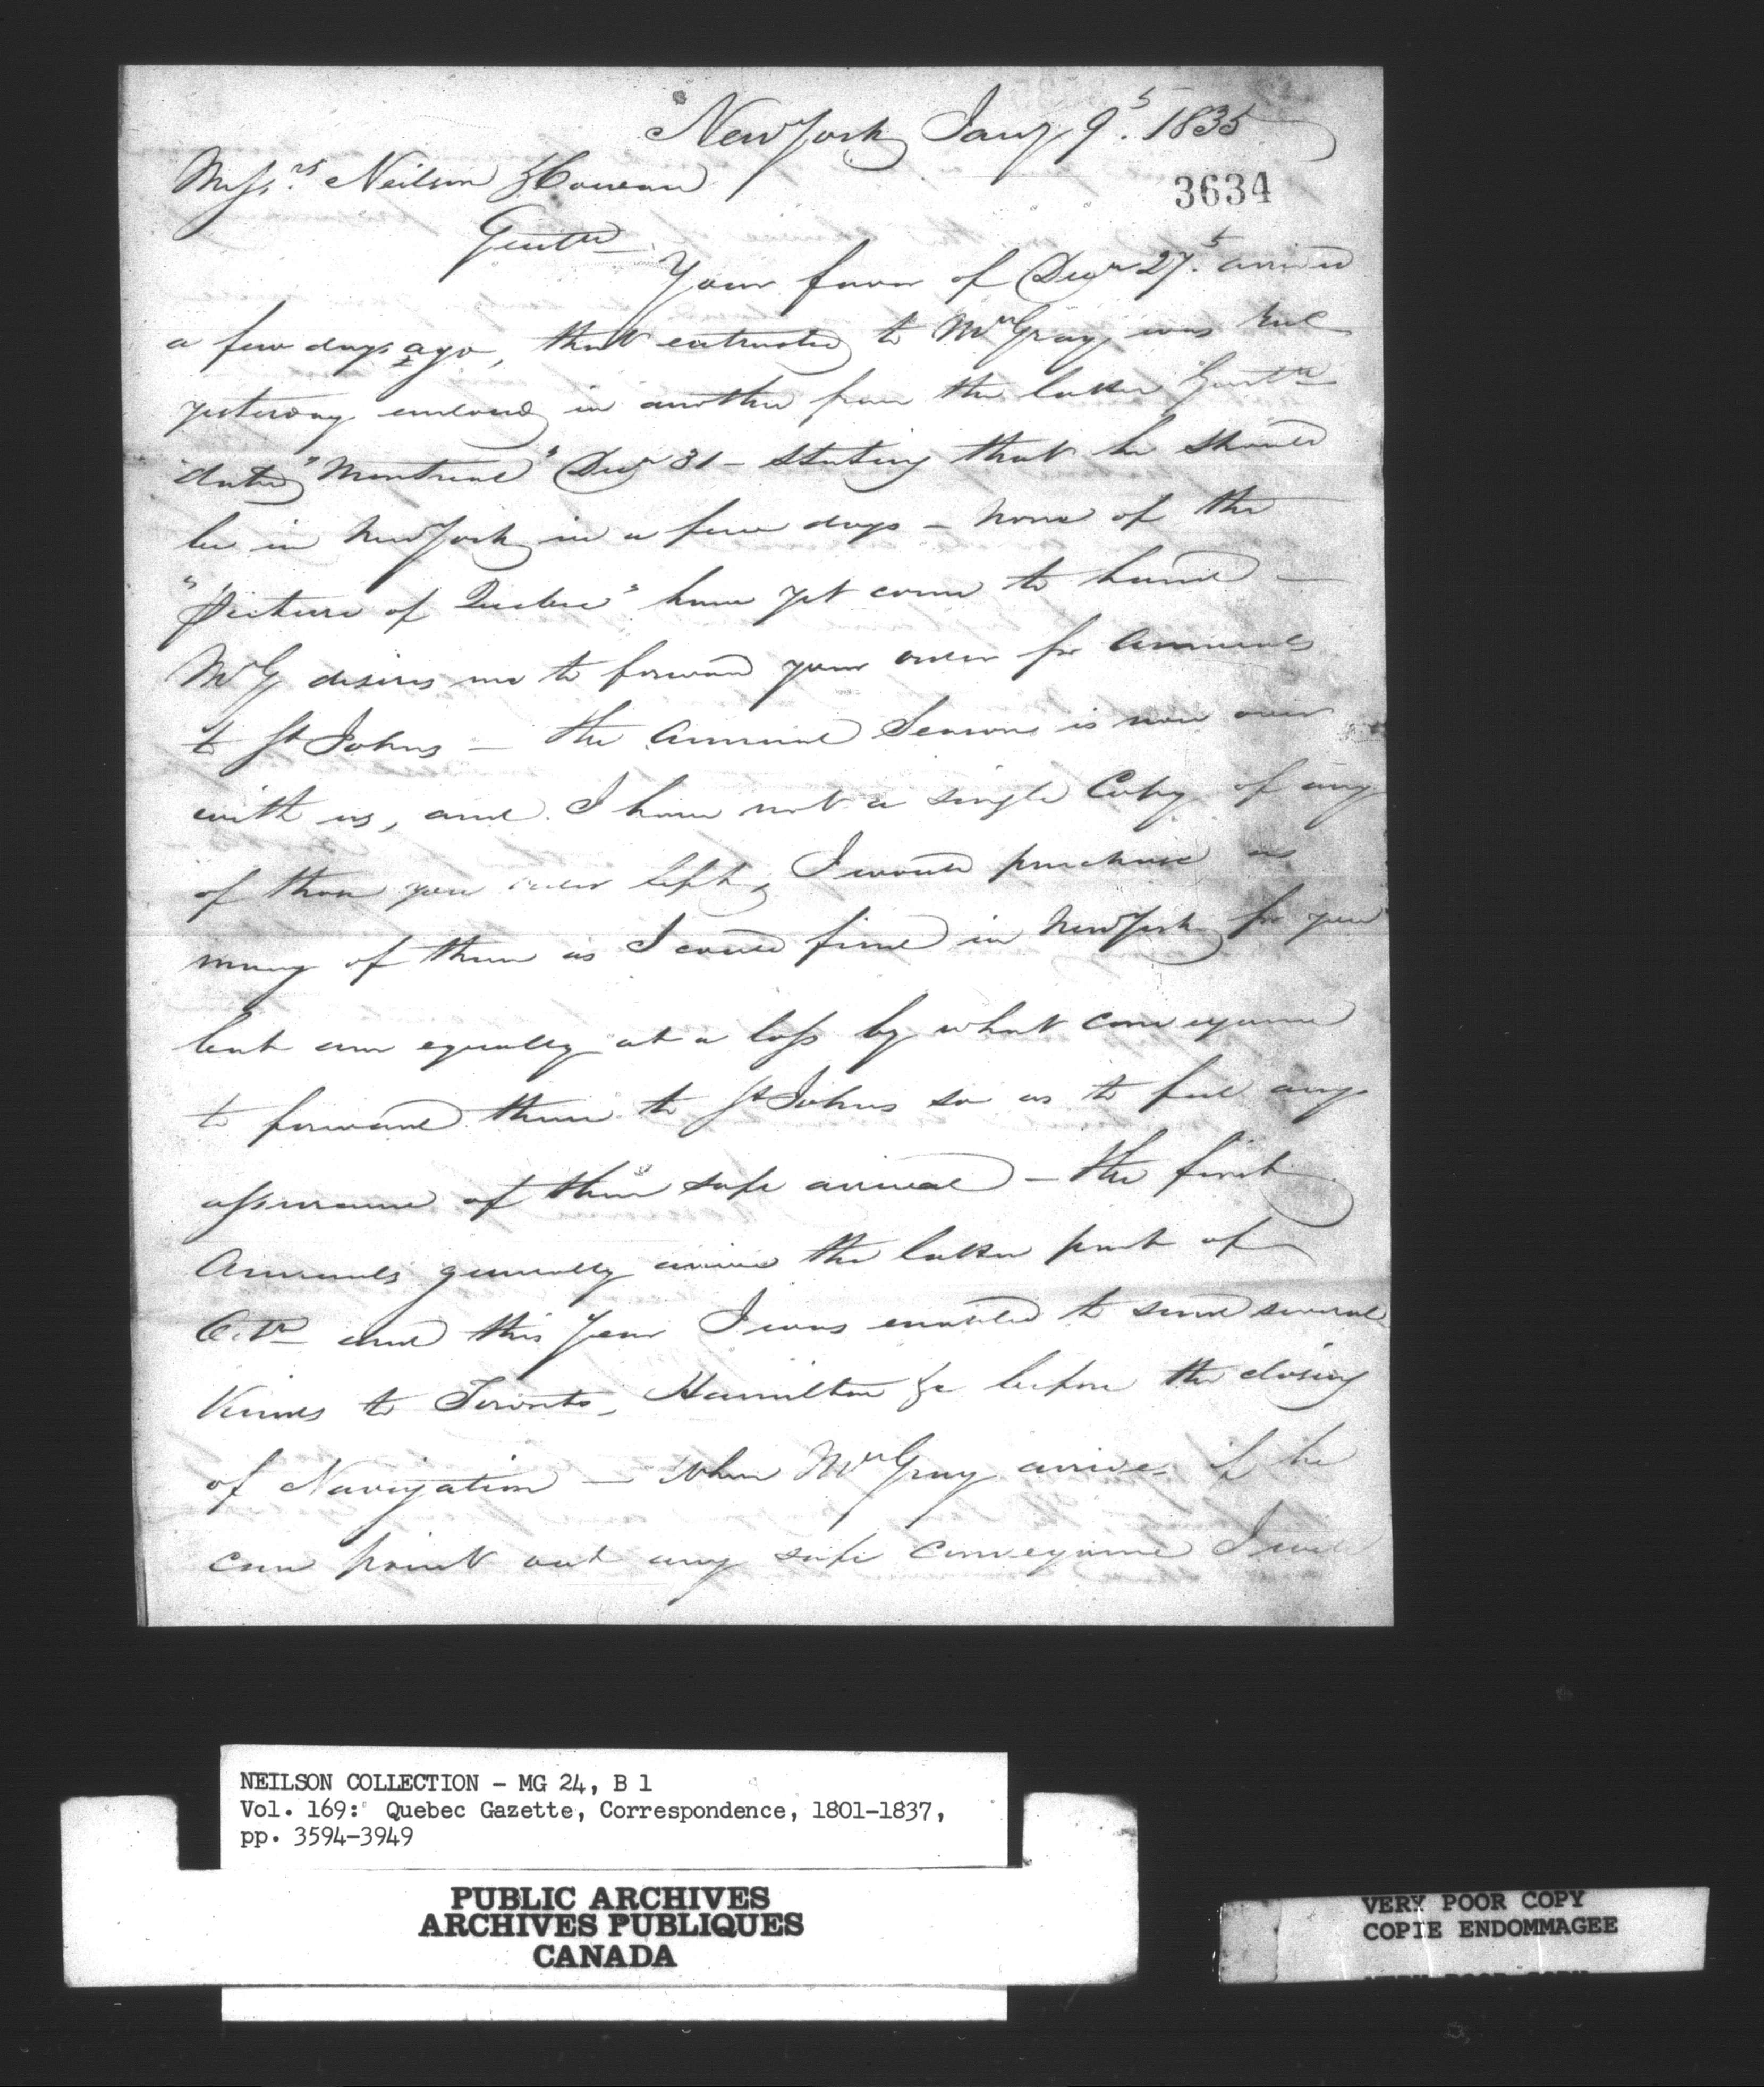 New York Jany 9th 1835
Messrs Neilson & Cowan
3634
Gentln
Your favor of Decr 27th arrived
a few days ago, that entrusted to Mr Gray was Recd
yesterday enclosed in another from the latter Gentn
dated "Montreal" Decr 31 – stating that he should
be in New York in a few days – none of the
"Picture of Quebec" have yet come to hand –
Mr G desires me to forward your order for Annuals
to St Johns – the Annual Season is now over
with us, and I have not a single Copy of any
of those you order left, I would purchase as
many of them as I could find in New York for you
but am equally at a loss by what conveyance
to forward them to St Johns so as to feel any
assurance of their safe arrival – the first
Annuals generally arrive the latter part of
Octr and this year I was enabled to send several
kinds to Toronto, Hamilton &c before the closing
of Navigation – When Mr Gray arrives if he
can point out any safe conveyance I will
NEILSON COLLECTION - MG 24, B 1
Vol. 169: Quebec Gazette, Correspondence, 1801-1837,
pp. 3594-3949
PUBLIC ARCHIVES
ARCHIVES PUBLIQUES
CANADA
VERY POOR COPY
COPIE ENDOMMAGEE